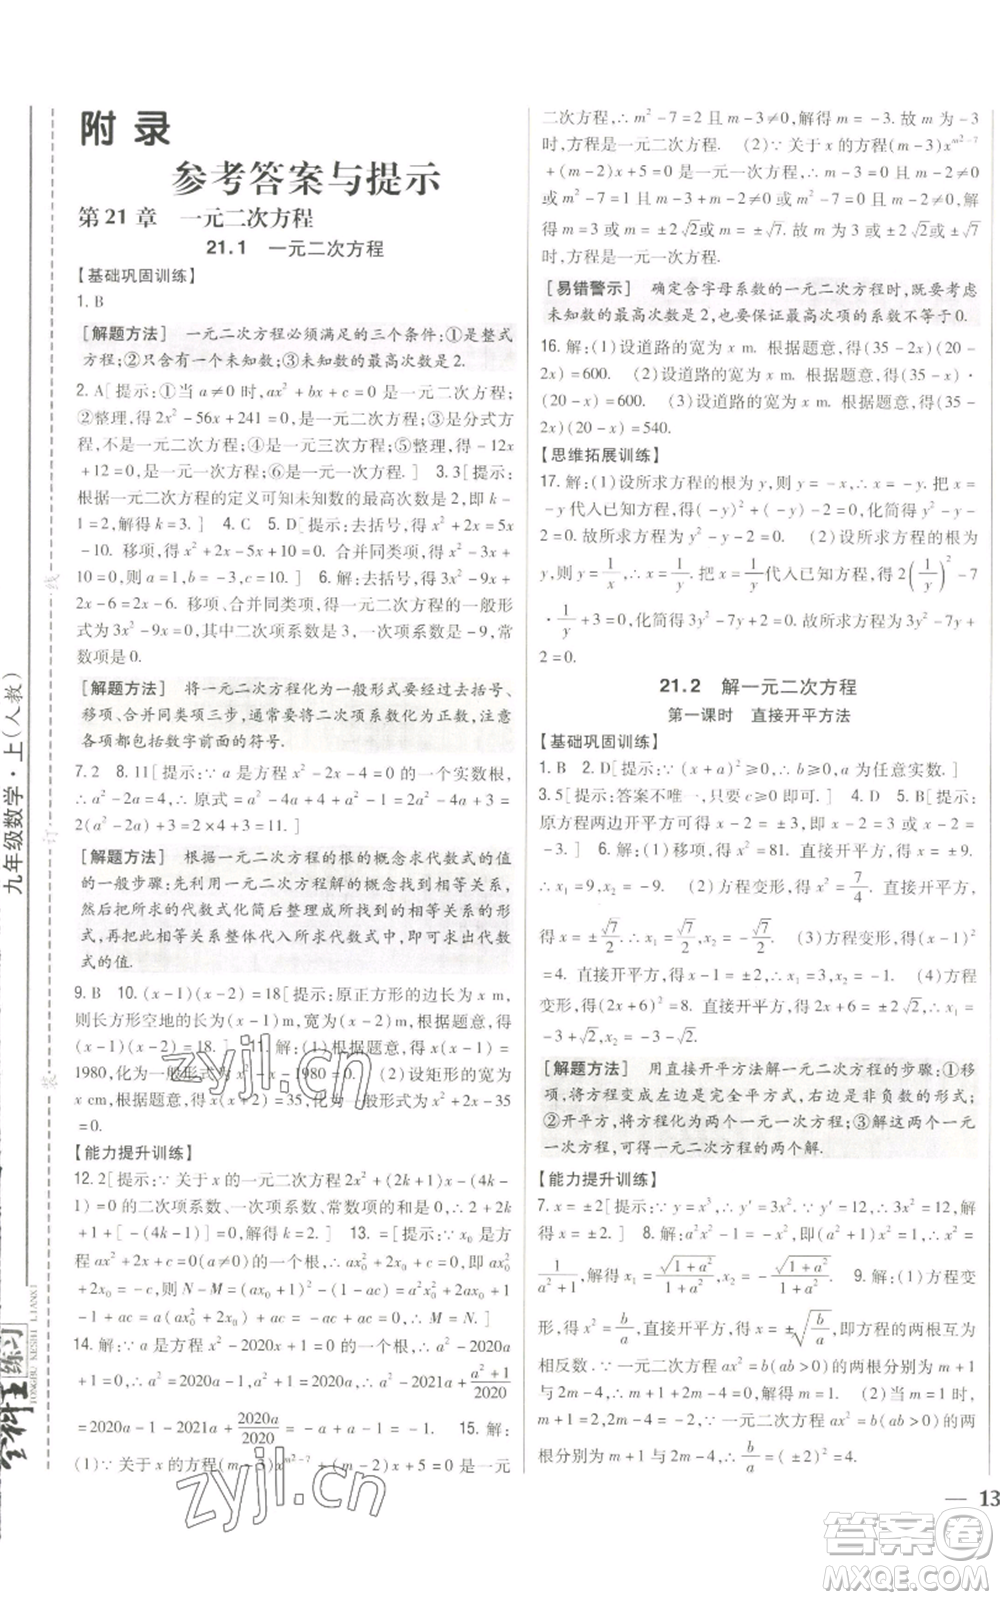 附 录
参考答案与提示
第 21 章 一元二次方程
21.1 一元二次方程
【基础巩固训练】
1. B
[解题方法] 一元二次方程必须满足的三个条件:①是整式
方程;②只含有一个未知数;③未知数的最高次数是 2.
2. A[提示:①当 a≠0 时,ax²+bx+c=0 是一元二次方程;
②整理,得 2x²-56x+241=0,是一元二次方程;③是分式方
程,不是一元二次方程;④是一元三次方程;⑤整理,得-12x
+12=0,是一元一次方程;⑥是一元二次方程.] 3. 3[提示:
根据一元二次方程的定义可知未知数的最高次数是 2,即 k-
1=2,解得 k=3.] 4. C 5. D[提示:去括号,得 x²-2x=5x
-10. 移项,得 x²-2x-5x+10=0. 合并同类项,得 x²-7x+
10=0,则 a=1,b=-7,c=10.] 6. 解:去括号,得 4x²-7x+6=
2x-6. 移项、合并同类项,得一元二次方程的一般形
式为 3x²-9x=0,其中二次项系数是 3,一次项系数是-9,常
数项是 0.
[解题方法] 将一元二次方程化为一般形式要经过去括号、
移项、合并同类项三步,尽量将二次项系数化为正数,注意
各项都包括数字前面的符号.
7. 2 8. 11[提示:∵a 是方程 x²-3x-4=0 的一个实数根,
∴a²-3a-4=0,∴a²-3a=4,∴原式=2(a²-3a)+3=2×4
+3=11.]
[解题方法] 根据一元二次方程的根的概念求代数式的值
的一般步骤:先利用一元二次方程解的概念找到相等关系,
然后把所求的代数式化简后整理成所找到的相等关系的形
式,再把此相等关系整体代入所求代数式中,即可求出代数
式的值.
9. B 10. (x-1)(x-2)=18[提示:原正方形的边长为 x m,
则长方形空地的长为(x-1)m,宽为(x-2)m. 根据题意,得
(x-1)(x-2)=18.] 11. 解:(1)根据题意,得 x(x-1)=
1980,化为一般形式为 x²-x-1980=0. (2)设矩形的宽为
x cm,根据题意,得 x(2x-2)=35,一般形式为 2x²-2x-35
=0.
【能力提升训练】
12. 2[提示:∵关于 x 的一元二次方程 2x²+(2k+1)x-(4k-
1)=0 的二次项系数、一次项系数、常数项的和是 0,∴2+2k
+1+[-(4k-1)]=0,解得 k=2.] 13. =[提示:∵x₀ 是方
程 ax²+2x+c=0(a≠0)的一个根,∴ax₀²+2x₀+c=0,即 ax₀²
+2x₀=-c,则 N-M=(ax₀+1)²-(1-ac)=a²x₀²+2ax₀+
1-1+ac=a(ax₀²+2x₀)+ac=-ac+ac=0,∴M=N.]
14. 解:∵a 是方程 x²-2020x+1=0 的一个根,∴a²-2020a+
1=0,∴a²=2020a-1,∴a²-2021a+(a²+1)/2020
=2020a-1-2021a+2020a/2020=-a-1+a=-1. 15. 解:
(1)∵关于 x 的方程(m-3)x^(m²-7)+(m-2)x+5=0 是一元
二次方程,∴m²-7=2 且 m-3≠0,解得 m=-3. 故当 m 为-3
时,方程是一元二次方程. (2)∵关于 x 的方程(m-3)x^(m²-7)
+(m-2)x+5=0 是一元一次方程,∴m-3=0 且 m-2≠0
或 m²-7=1 且 m-3+m-2≠0 或 m²-7=0 且 m-2≠0,解
得 m=3 或 m=±2√2或 m=±√7. 故当 m 为 3 或±2√2或±√7
时,方程是一元一次方程.
[易错警示] 确定含字母系数的一元二次方程时,既要考虑
未知数的最高次数是 2,也要保证最高次项的系数不等于 0.
16. 解:(1)设道路的宽为 x m. 根据题意,得(35-2x)(20-
2x)=600. (2)设道路的宽为 x m. 根据题意,得(35-x)·
(20-x)=600. (3)设道路的宽为 x m. 根据题意,得(35-
2x)(20-x)=540.
【思维拓展训练】
17. 解:(1)设所求方程的根为 y,则 y=-x,∴x=-y. 把 x=
-y 代入已知方程,得(-y)²+(-y)-2=0,化简得 y²-y-2
=0. 故所求方程为 y²-y-2=0. (2)设所求方程的根为
y,则 y=1/x,∴x=1/y. 把 x=1/y代入已知方程,得 2(1/y)²-7
·1/y+3=0,化简得 3y²-7y+2=0. 故所求方程为 3y²-7y+
2=0.
21.2 解一元二次方程
第一课时 直接开平方法
【基础巩固训练】
1. B 2. D[提示:∵(x+a)²=b,∴b≥0,a 可为任意实数.]
3. 5[提示:答案不唯一,只要 c≥0 即可.]
原方程两边开平方可得 x-2=±3,即 x-2=3 或 x-2=-3.]
6. 解:(1)移项,得 x²=81. 直接开平方,得 x=±9.
∴x₁=9,x₂=-9. (2)方程变形,得 x²=7/4. 直接开平方,
得 x=±√7/2,∴x₁=√7/2,x₂=-√7/2. (3)方程变形,得(x-1)²
=4. 直接开平方,得 x-1=±2,∴x₁=3,x₂=-1. (4)方程
变形,得(2x+6)²=8. 直接开平方,得 2x+6=±2√2,∴x₁=
-3+√2,x₂=-3-√2.
[解题方法] 用直接开平方法解一元二次方程的步骤:①移
项,将方程变成左边是完全平方式,右边是非负数的形式;
②开平方,将方程化为两个一元一次方程;③解这两个一元
一次方程,可得一元二次方程的两个解.
【能力提升训练】
九年级数学·上(人教)
装 订 线
全科王
练习
TONGBU KESHI LIANXI
zyjl.cn
zyjl.cn
— 13
答案卷
MXQE.COM